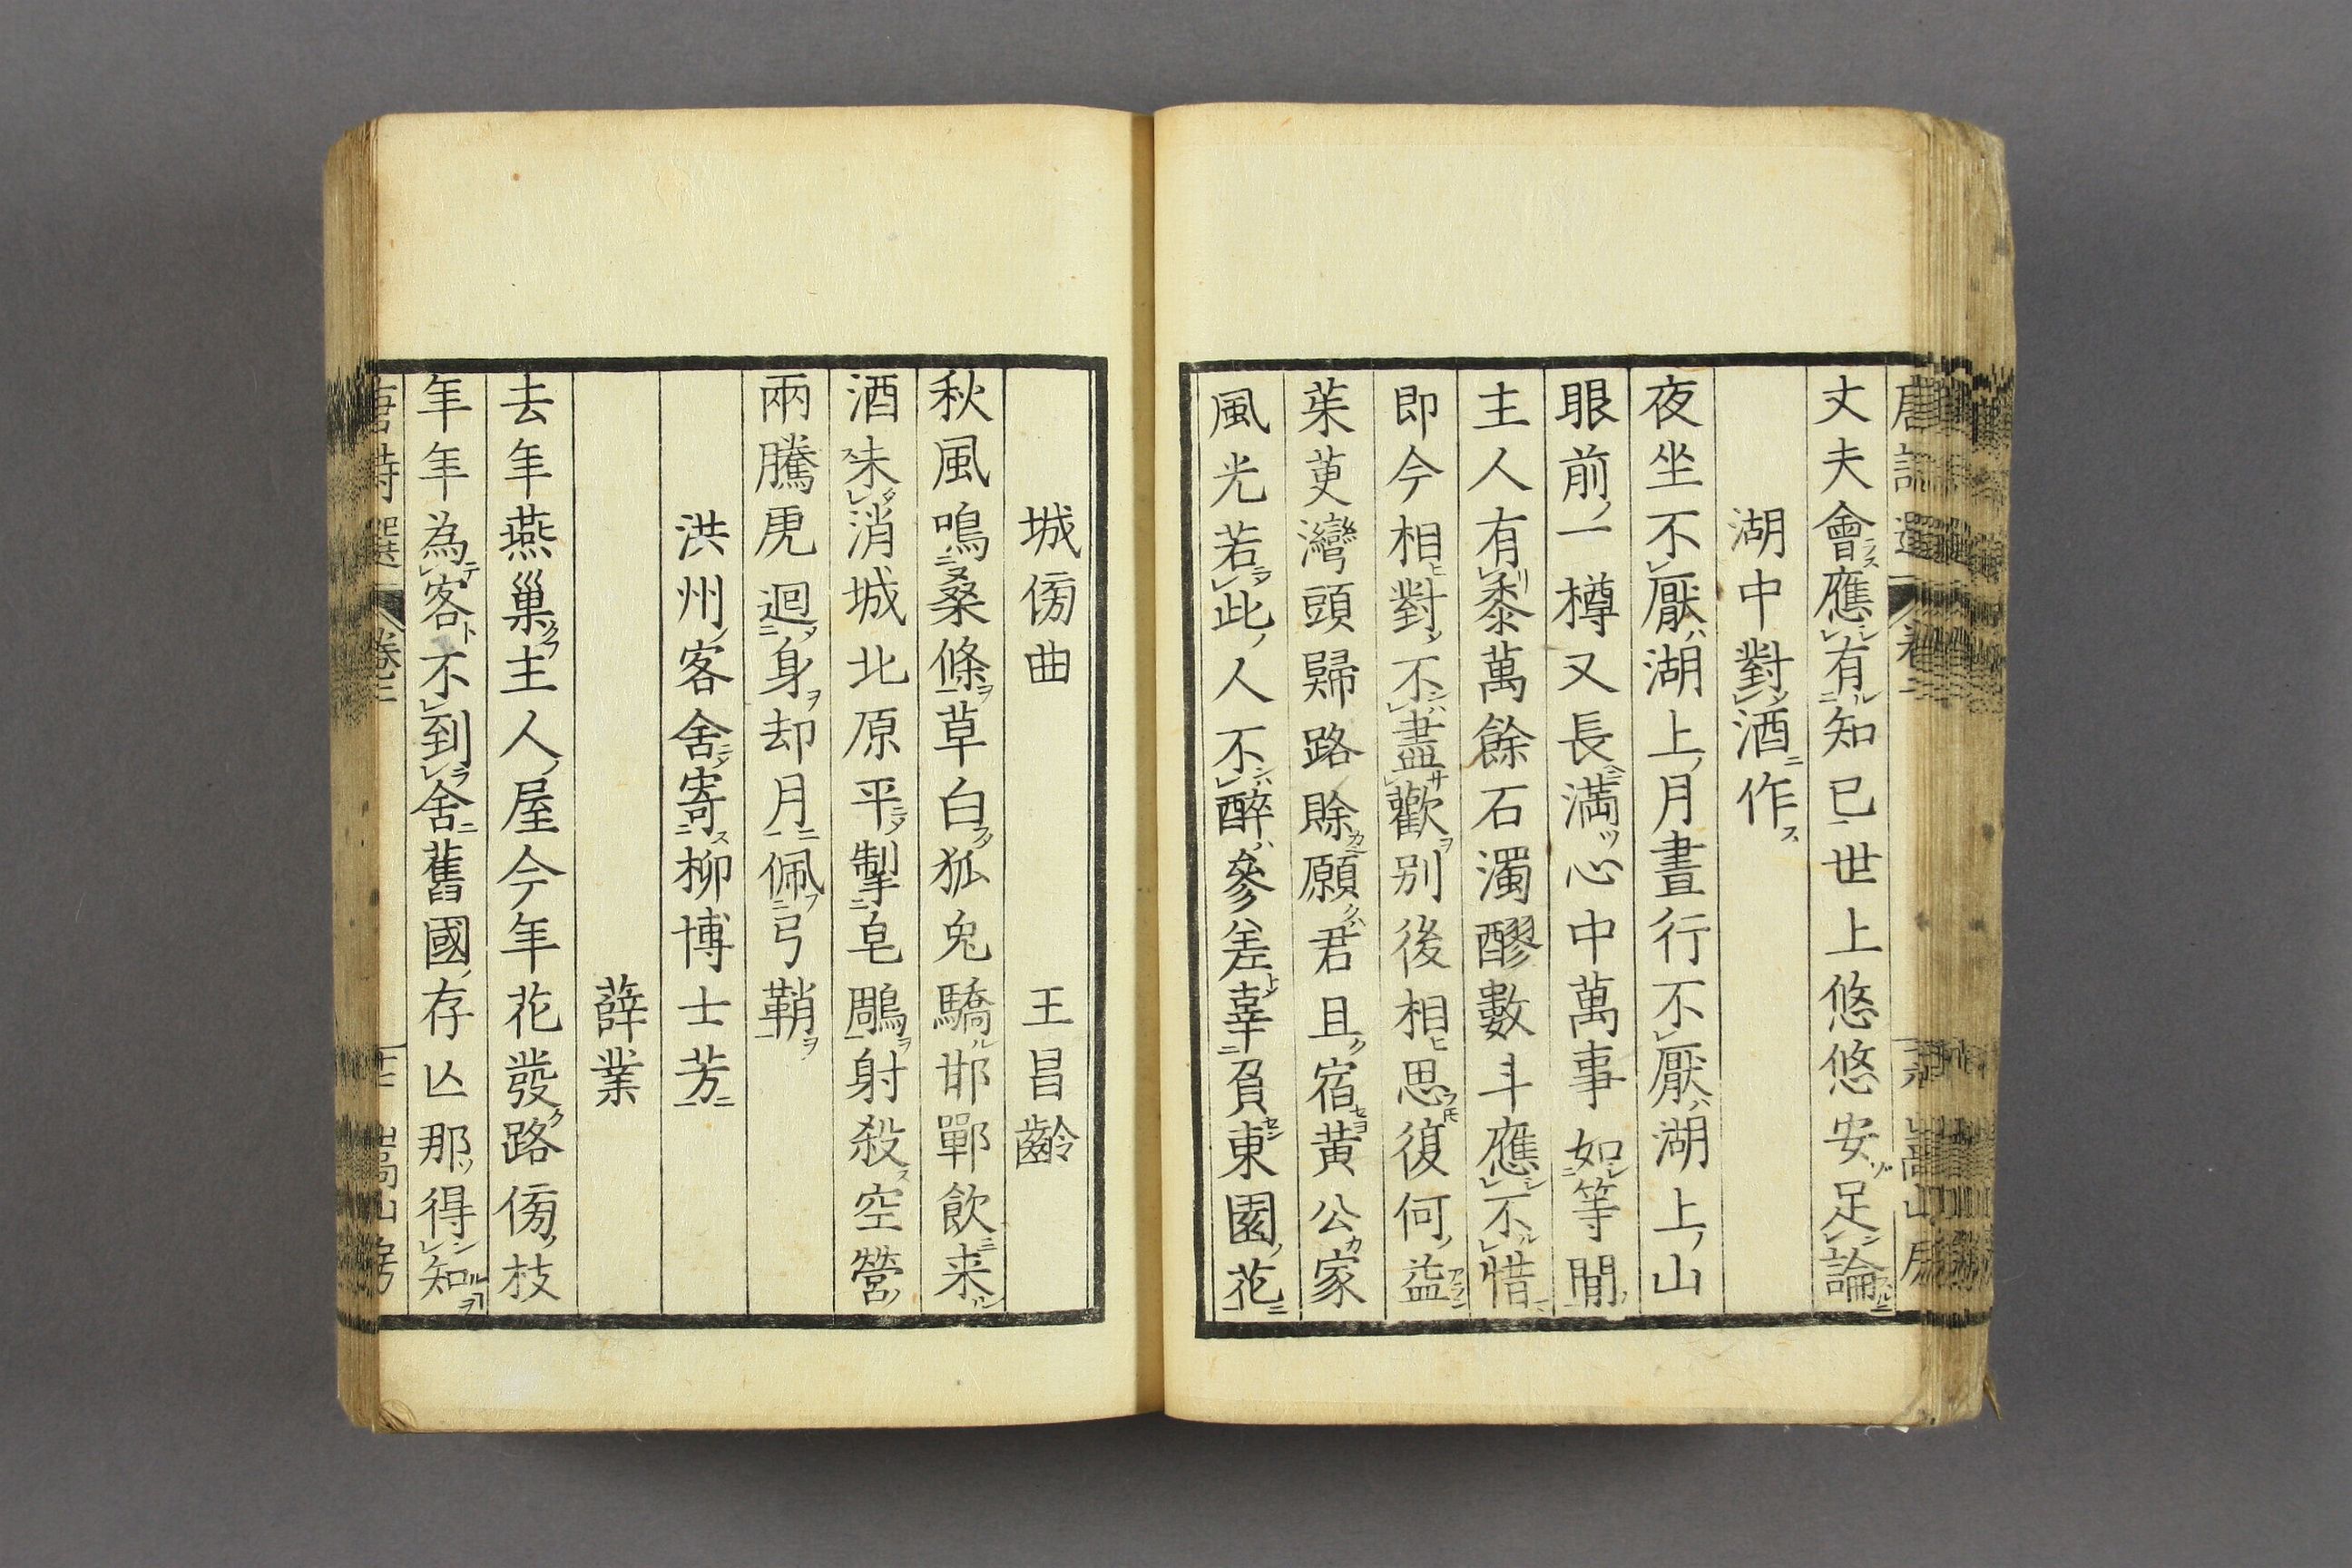 丈夫會應有知已世上悠悠安足論
湖中對酒作
夜坐不厭湖上月晝行不厭湖上山
眼前一樽又長滿心中萬事如等閒
主人有黍萬餘石濁醪數斗應不惜
即今相對不盡歡別後相思復何益
茱萸灣頭歸路賒願君且宿黃公家
風光若此人不醉參差辜負東園花
城傍曲 王昌齡
秋風鳴桑條草白狐兔驕邯鄲飲來
酒未消城北原平掣皂鵰射殺空營
兩騰虎迴身却月佩弓鞘
洪州客舍寄柳博士芳
薛業
去年燕巢主人屋今年花發路傍枝
年年為客不到舍舊國存亾那得知
唐詩選 卷二 嵩山房